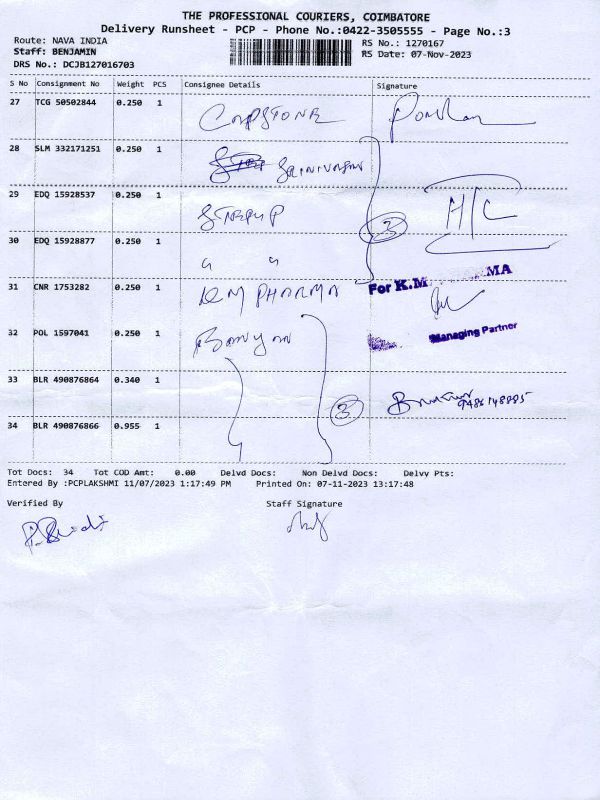 THE PROFESSIONAL COURIERS, COIMBATORE
Delivery Runsheet - PCP - Phone No.:0422-3505555 - Page No.:3
Route: NAVA INDIA RS No.: 1270167
Staff: BENJAMIN RS Date: 07-Nov-2023
DRS No.: DCJB127016703
S No Consignment No Weight PCS Consignee Details Signature
27 TCG 50502844 0.250 1 CAPSTONE
28 SLM 332171251 0.250 1 SRINIVASAN
29 EDQ 15928537 0.250 1 H/C
3
30 EDQ 15928877 0.250 1 " "
31 CNR 1753282 0.250 1 KM PHARMA For K.M MA
32 POL 1597041 0.250 1 Banyan Managing Partner
33 BLR 490876864 0.340 1
3 9486148885
34 BLR 490876866 0.955 1
Tot Docs: 34 Tot COD Amt: 0.00 Delvd Docs: Non Delvd Docs: Delvy Pts:
Entered By :PCPLAKSHMI 11/07/2023 1:17:49 PM Printed On: 07-11-2023 13:17:48
Verified By Staff Signature